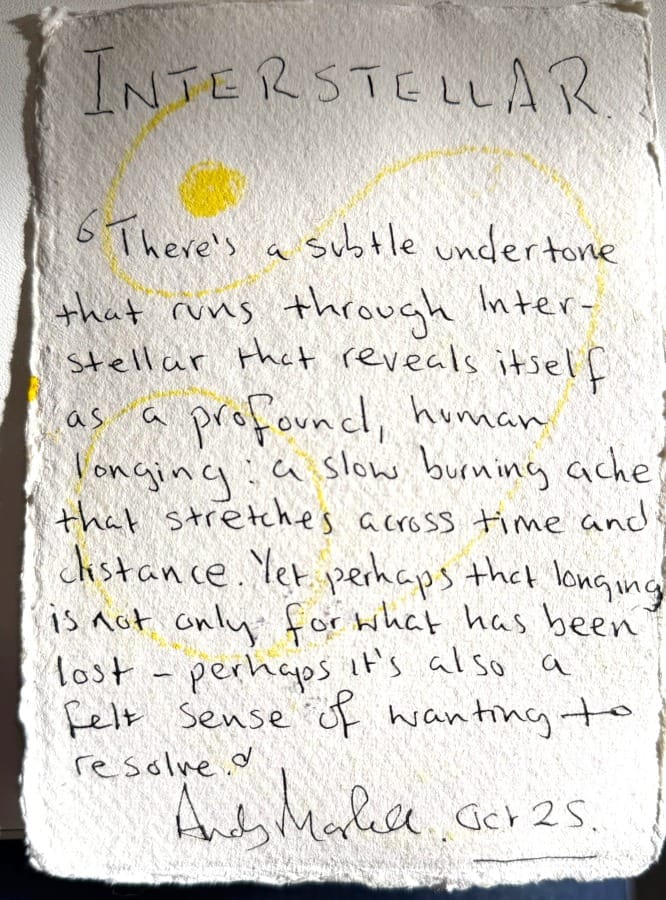 INTERSTELLAR.
“There's a subtle undertone
that runs through Inter-
stellar that reveals itself
as a profound, human
longing: a slow burning ache
that stretches across time and
distance. Yet perhaps that longing
is not only for what has been
lost – perhaps it's also a
felt sense of wanting to
resolve.”
Andy Oct 25.